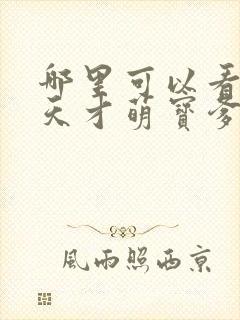 那里可以看
天才萌寶爹
風雨照西京